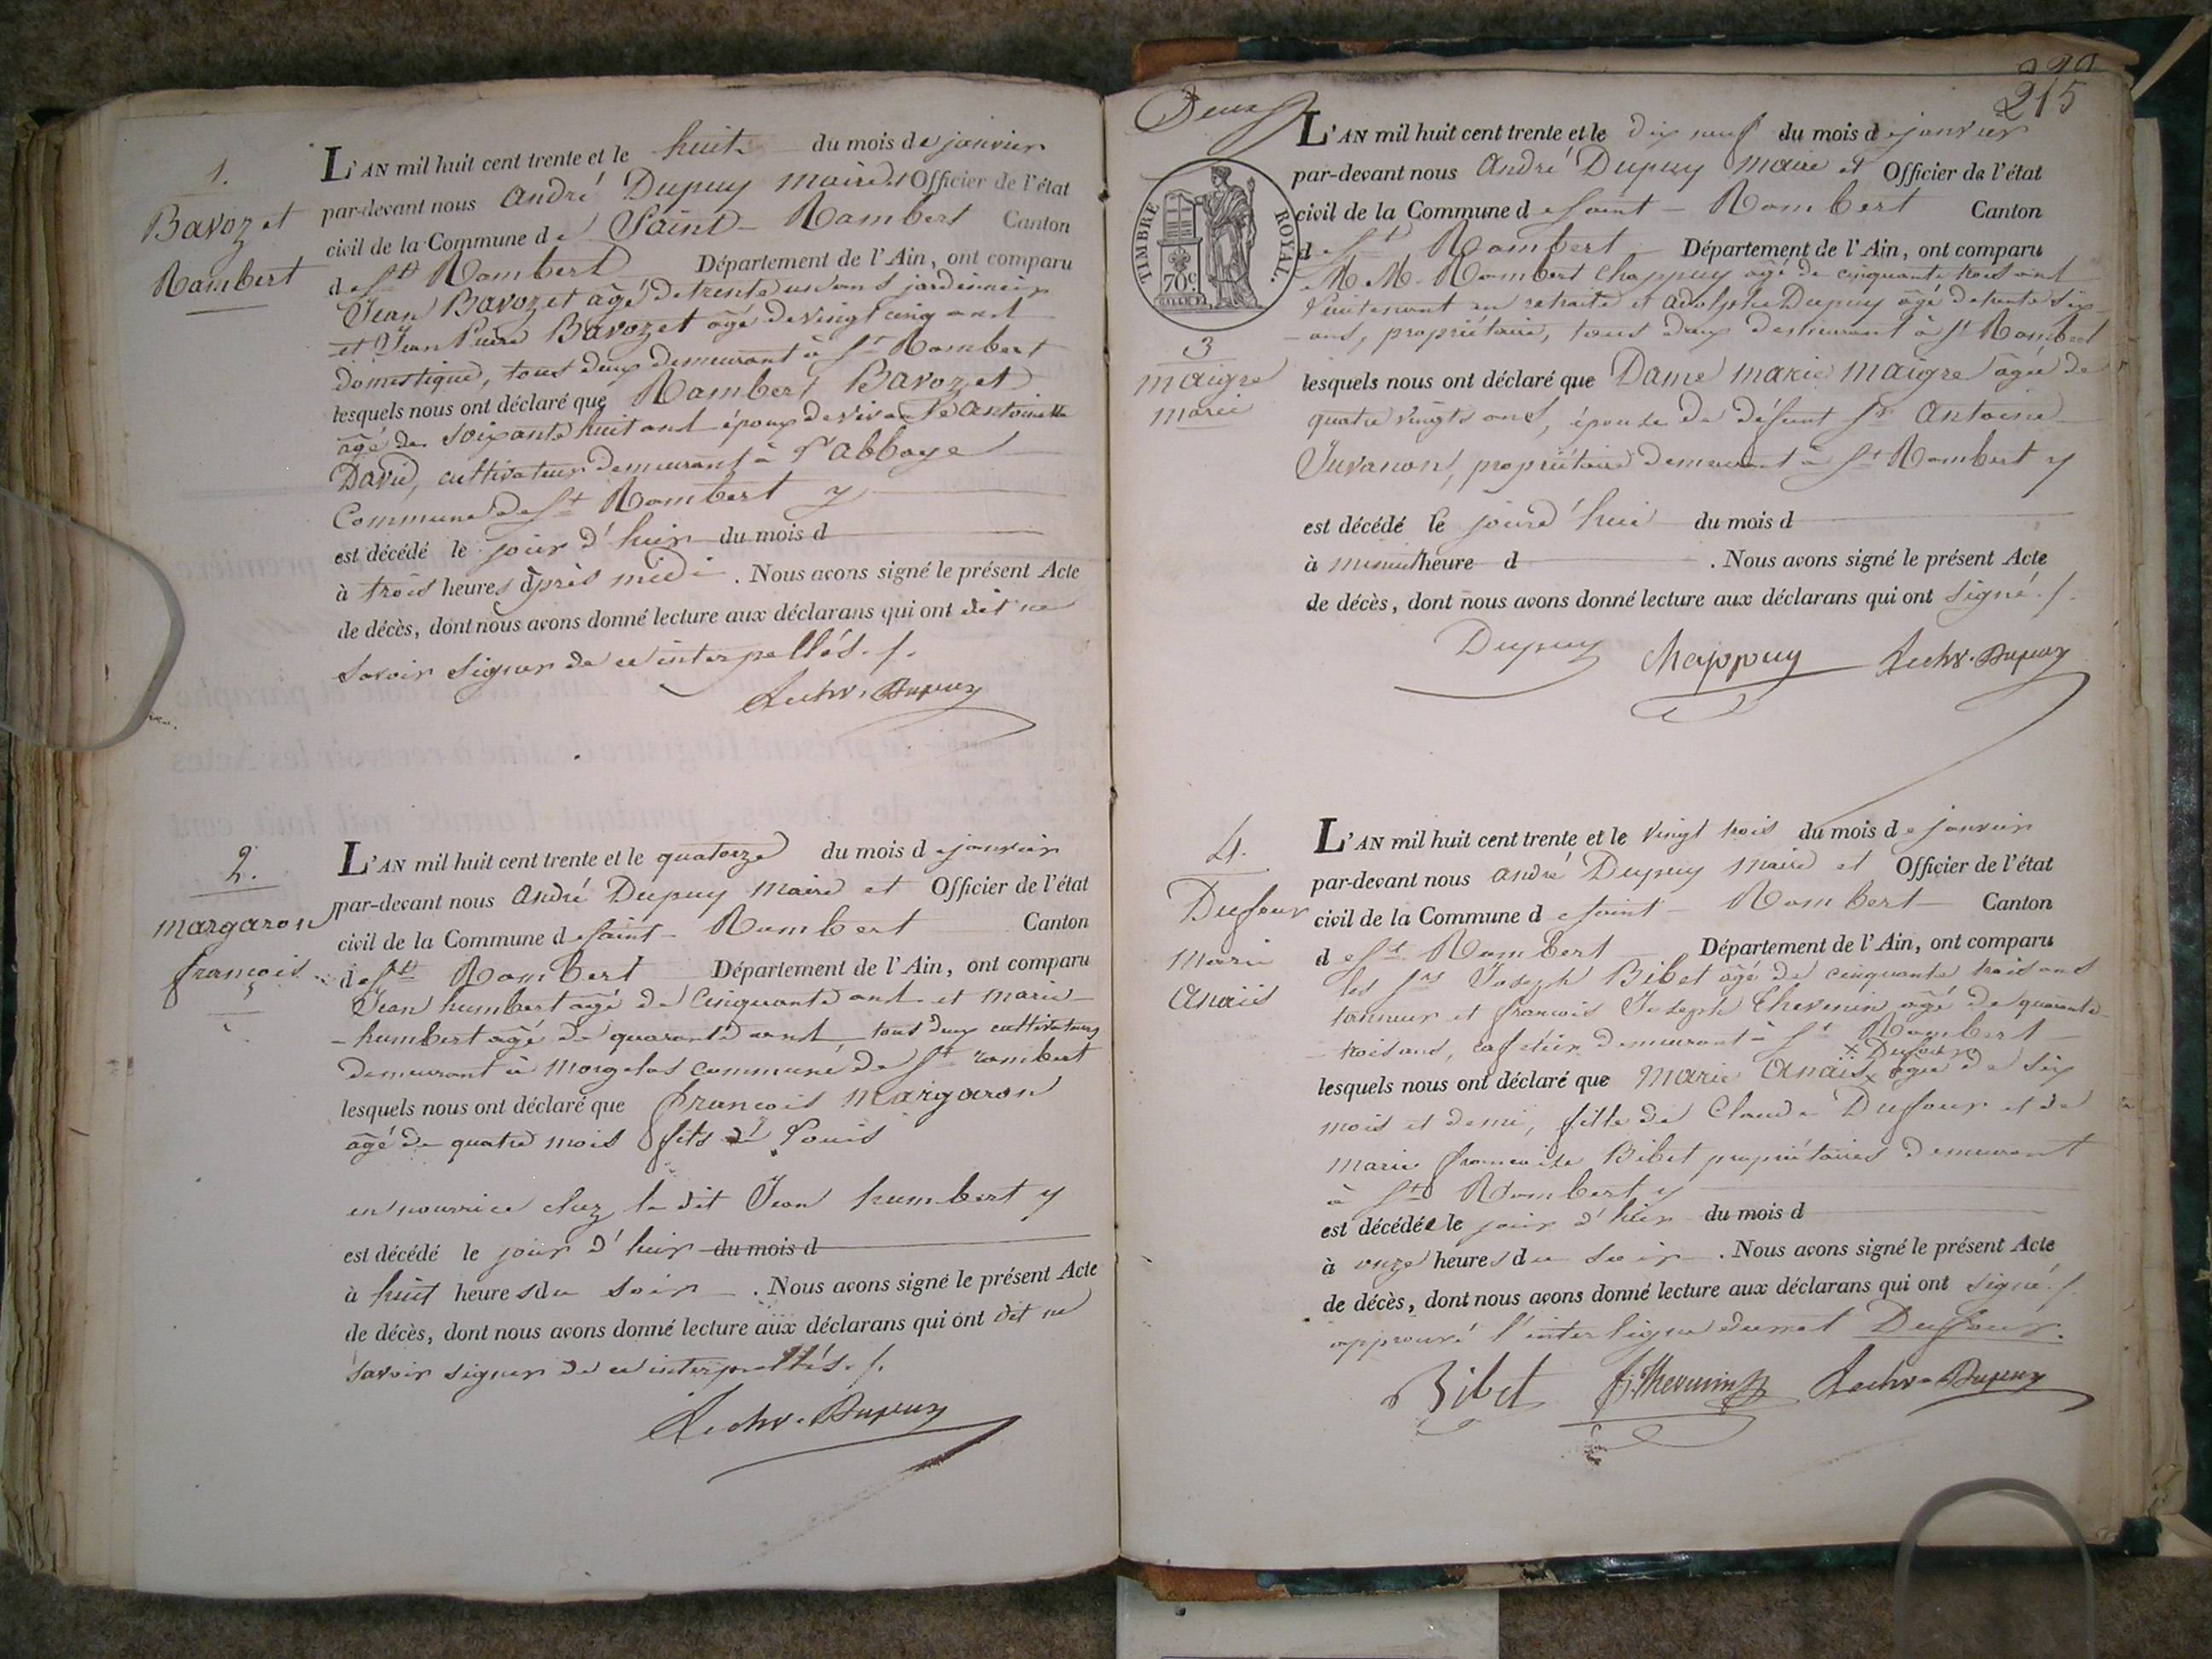 1.
Bavozet
Rambert
L'AN mil huit cent trente et le huit du mois de janvier
par-devant nous André Dupuy maire et Officier de l'état
civil de la Commune de Saint-Rambert Canton
de St Rambert Département de l'Ain, ont comparu
Jean Bavozet âgé de trente un ans jardinier
et Jean Pierre Bavozet âgé de vingt cinq ans
domestique, tous deux demeurant à St Rambert
lesquels nous ont déclaré que Rambert Bavozet
âgé de soixante huit ans époux de vivante Antoinette
David, cultivateur demeurant à l'abbaye
Commune de St Rambert y
est décédé le jour d'hier du mois d
à trois heures après midi. Nous avons signé le présent Acte
de décès, dont nous avons donné lecture aux déclarans qui ont dit ne
savoir signer de ce interpellés./.
Dupuy
2.
margaron
françois
L'AN mil huit cent trente et le quatorze du mois de janvier
par-devant nous André Dupuy maire et Officier de l'état
civil de la Commune de Saint-Rambert Canton
de St Rambert Département de l'Ain, ont comparu
Jean humbert âgé de cinquante ans et marie
humbert âgé de quarante ans, tous deux cultivateurs
demeurant à morgelas commune de St rambert
lesquels nous ont déclaré que françois Margaron
âgé de quatre mois fils de Louis
en nourrice chez le dit Jean humbert y
est décédé le jour d'hier du mois d
à huit heures du soir. Nous avons signé le présent Acte
de décès, dont nous avons donné lecture aux déclarans qui ont dit ne
savoir signer de ce interpellés./.
Dupuy
215
Deux
TIMBRE ROYAL.
70c
L'AN mil huit cent trente et le dix neuf du mois de janvier
par-devant nous André Dupuy maire et Officier de l'état
civil de la Commune de Saint-Rambert Canton
de St Rambert Département de l'Ain, ont comparu
M.M. Rambert Chappuy âgé de cinquante trois ans
lieutenant en retraite et adolphe Dupuy âgé de trente six
ans, propriétaire, tous deux demeurant à St Rambert
3
maigre
marie
lesquels nous ont déclaré que Dame marie Maigre âgée de
quatre vingts ans, épouse de défunt Sr Antoine
Juvanon, propriétaire demeurant à St Rambert y
est décédé le jourd'hui du mois d
à minuit heure d . Nous avons signé le présent Acte
de décès, dont nous avons donné lecture aux déclarans qui ont signé./.
Dupuy Chappuy Dupuy
4.
Dufour
Marie
Anaïs
L'AN mil huit cent trente et le vingt trois du mois de janvier
par-devant nous André Dupuy maire et Officier de l'état
civil de la Commune de Saint-Rambert Canton
de St Rambert Département de l'Ain, ont comparu
les Srs Joseph Bibet âgé de cinquante trois ans
tanneur et françois Joseph Thevenin âgé de quarante
trois ans, cafetier demeurant à St Rambert
x Dufour
lesquels nous ont déclaré que Marie Anaïs x âgée de six
mois et demi, fille de Claude Dufour et de
Marie françoise Bibet propriétaires demeurant
à St Rambert y
est décédée le jour d'hier du mois d
à onze heures du soir. Nous avons signé le présent Acte
de décès, dont nous avons donné lecture aux déclarans qui ont signé./.
approuvé l'interligne du mot Dufour.
Bibet f.j. Thevenin Dupuy